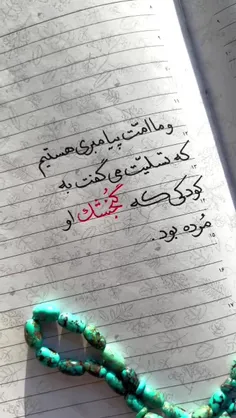 و ما امّت پیامبری هستیم
که تسلیت می گفت به
کودکی که گنجشک او
مُرده بود.